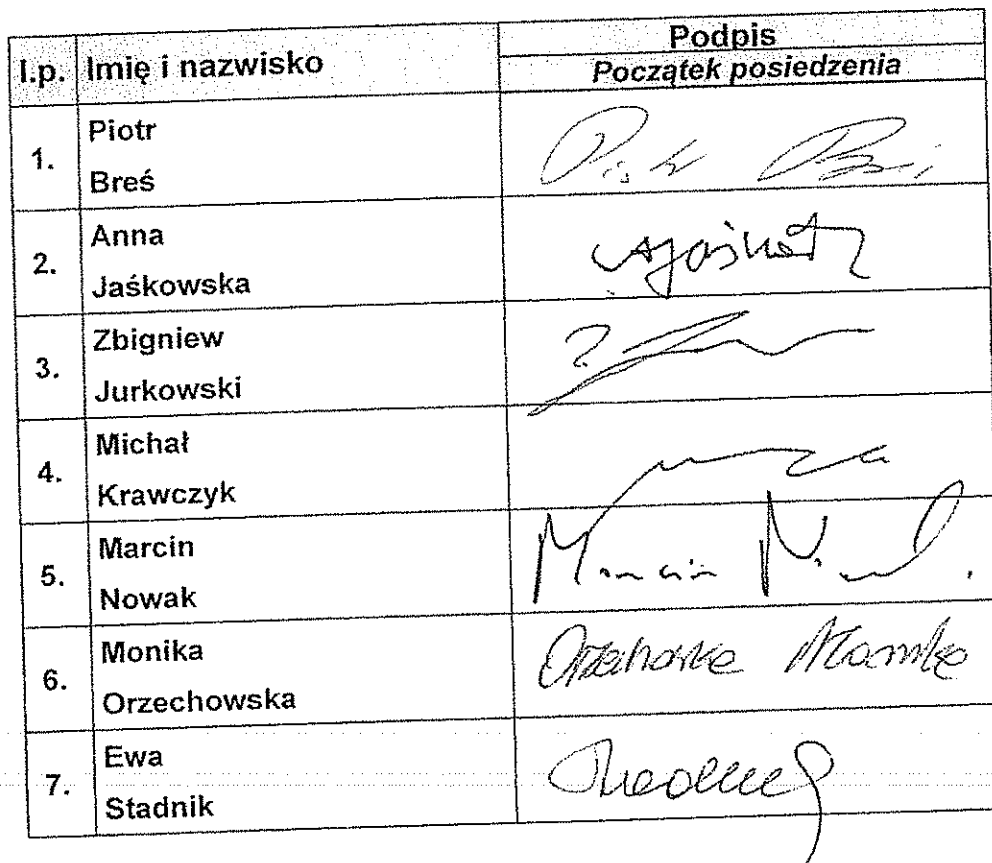 l.p. Imię i nazwisko Podpis
Początek posiedzenia
1. Piotr
Breś
2. Anna
Jaśkowska
3. Zbigniew
Jurkowski
4. Michał
Krawczyk
5. Marcin
Nowak
Marcin
6. Monika
Orzechowska
Orzechowska Monika
7. Ewa
Stadnik